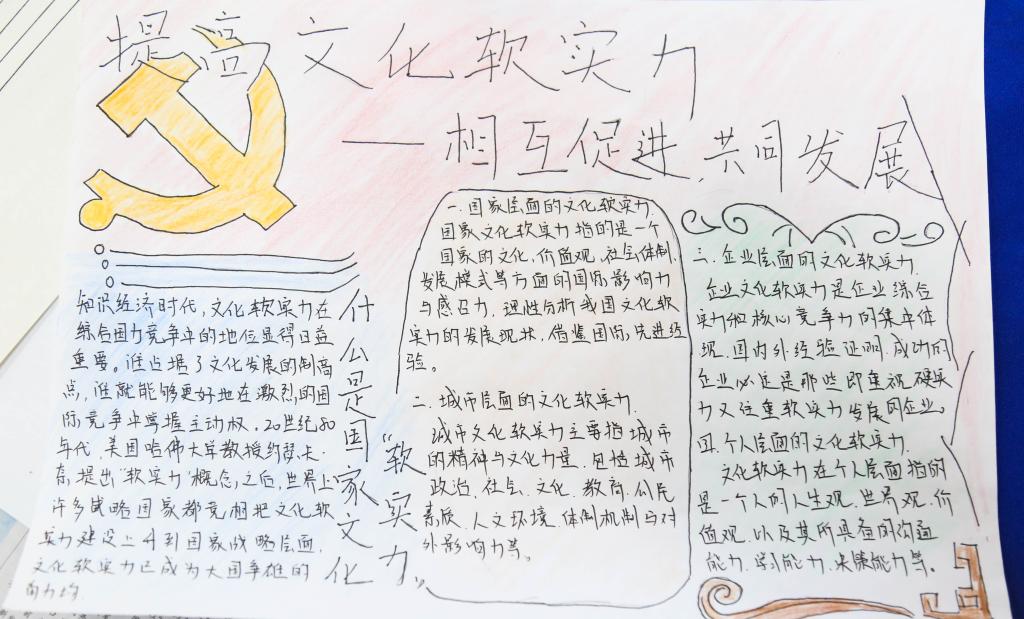 提高文化软实力
——相互促进 共同发展
什么是国家文化
“软实力”
知识经济时代，文化软实力在
综合国力竞争中的地位显得日益
重要。谁占据了文化发展的制高
点，谁就能够更好地在激烈的国
际竞争中掌握主动权。20世纪80
年代，美国哈佛大学教授约瑟夫·
奈提出“软实力”概念之后，世界上
许多战略国家都竞相把文化软
实力建设上升到国家战略层面，
文化软实力已成为大国争雄的
一.国家层面的文化软实力.
国家文化软实力指的是一个
国家的文化、价值观、社会体制、
发展模式等方面的国际影响力
与感召力，理性分析我国文化软
实力的发展现状，借鉴国际先进经
验。
二.城市层面的文化软实力.
城市文化软实力主要指城市
的精神与文化力量，包括城市
政治、社会、文化、教育、公民
素质、人文环境、体制机制与对
外影响力等。
三.企业层面的文化软实力.
企业文化软实力是企业综合
实力和核心竞争力的集中体
现.国内外经验证明.成功的
企业必定是那些即重视硬实
力又注重软实力发展的企业。
四.个人层面的文化软实力.
文化软实力在个人层面指的
是一个人的人生观、世界观、价
值观、以及其所具备的沟通
能力、学习能力、决策能力等。